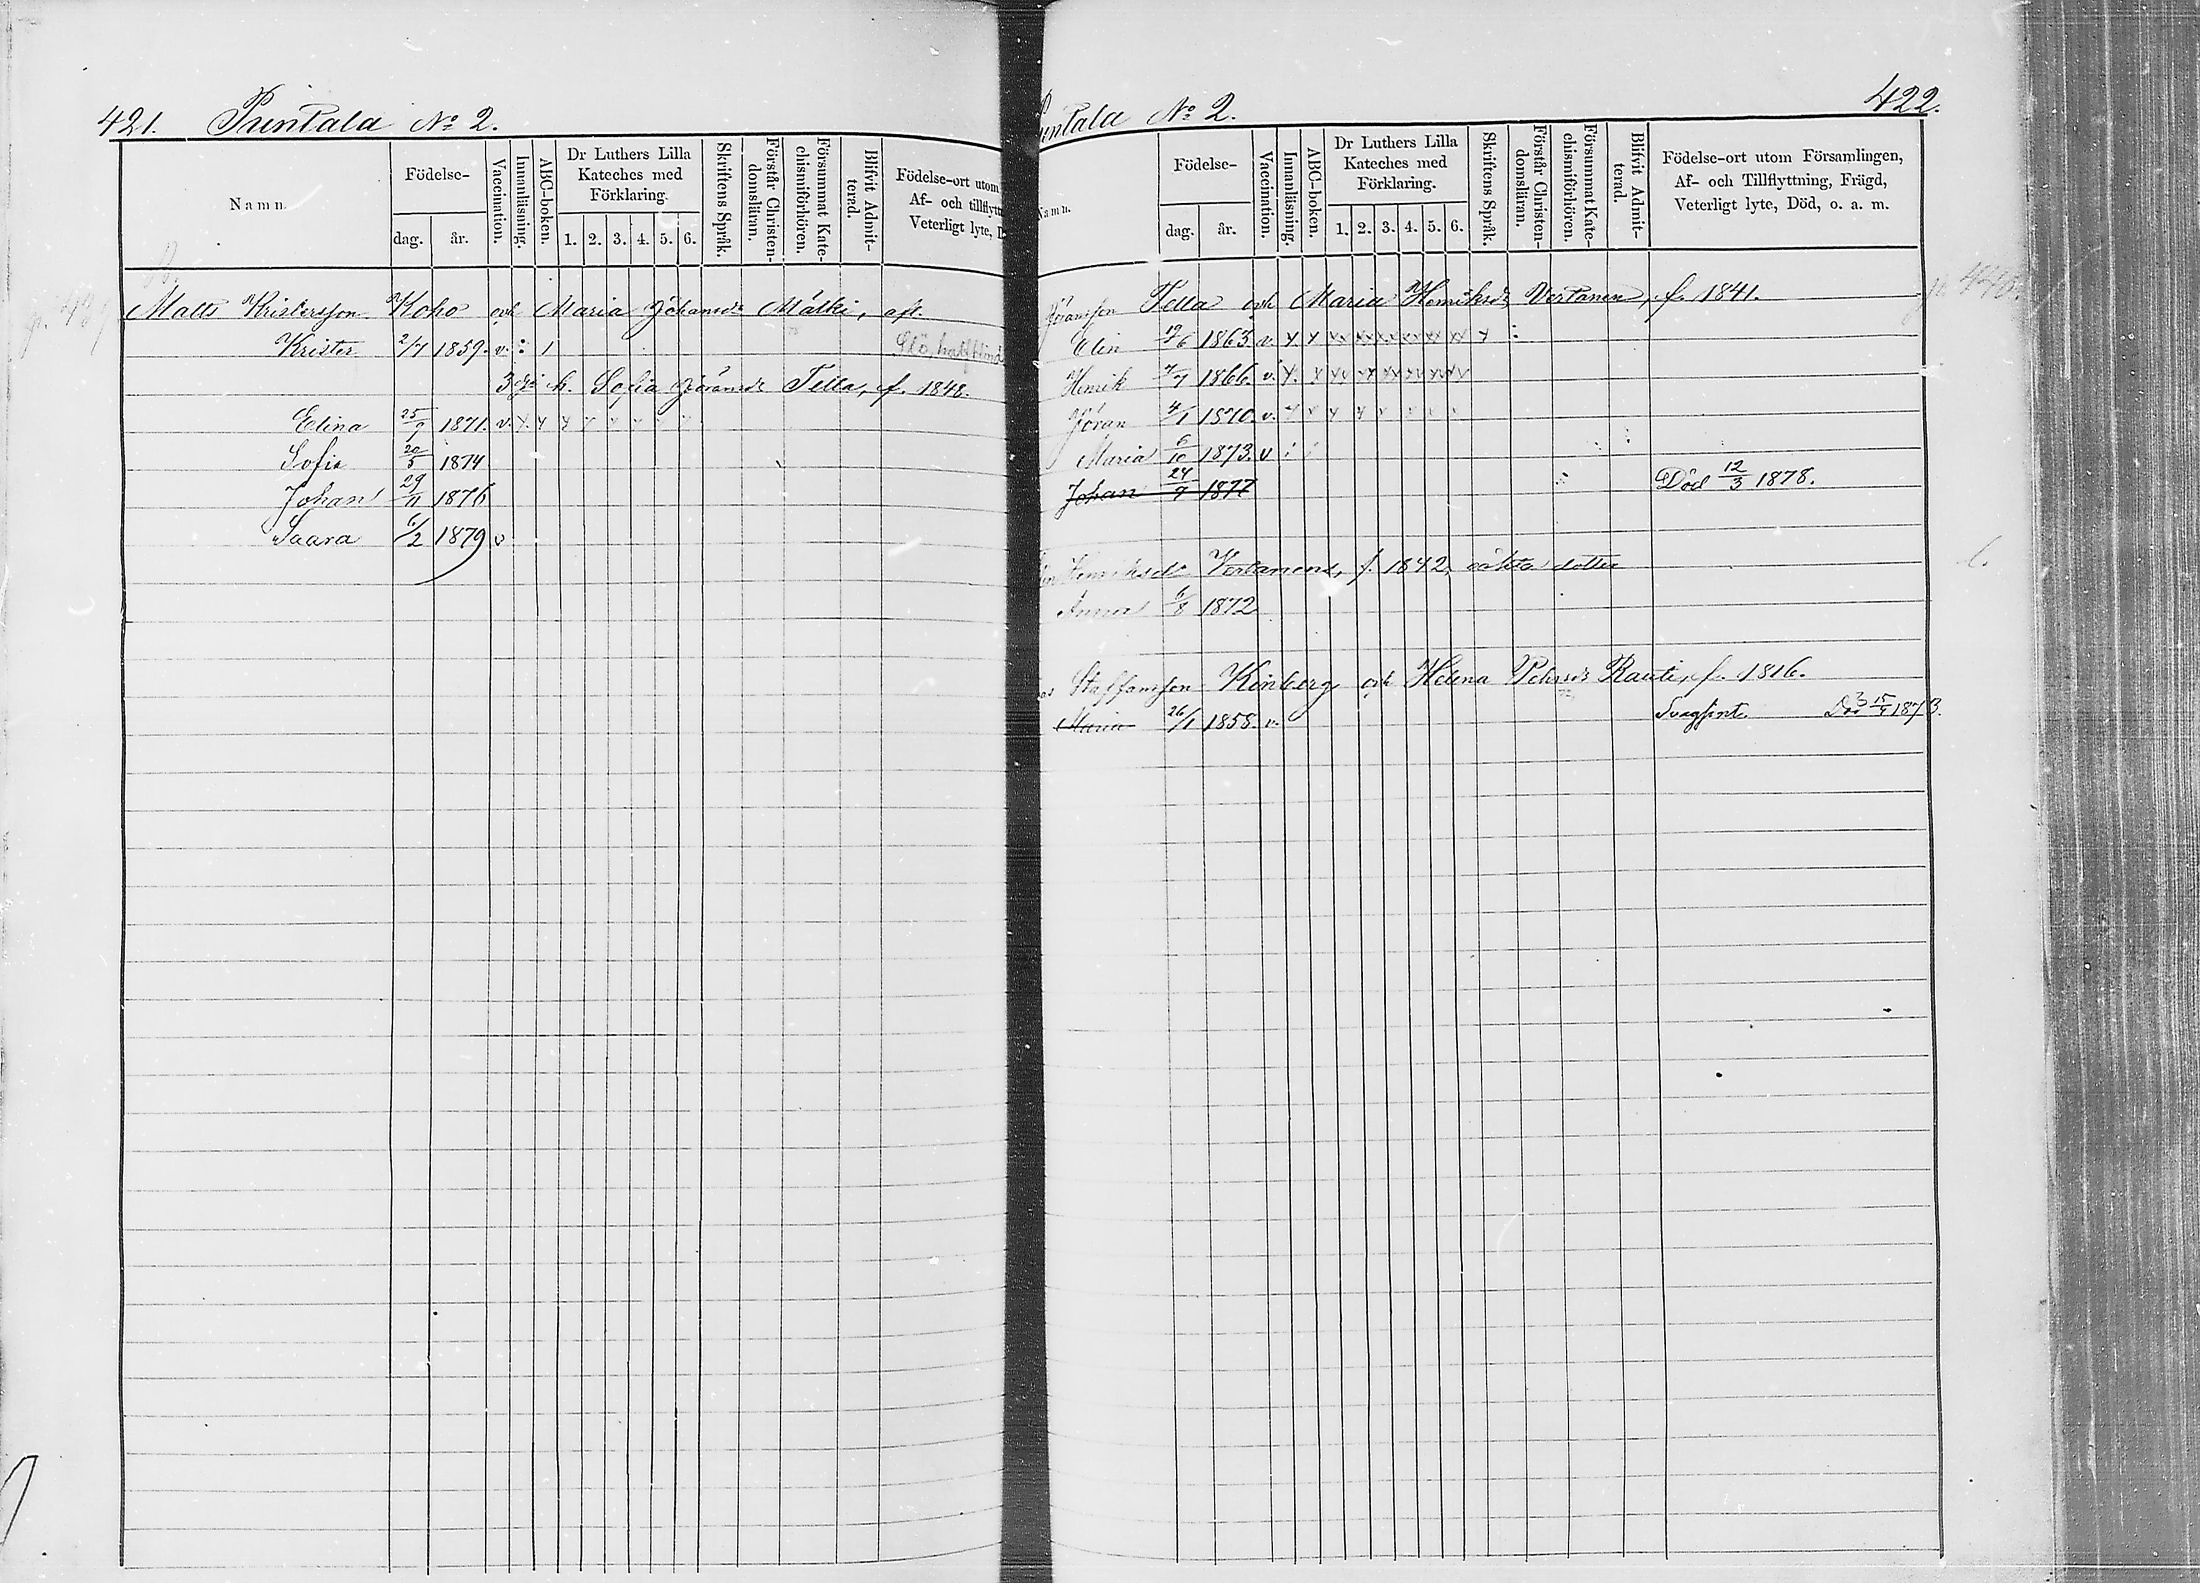 421. Puntala No 2.
Namn.
Födelse-
dag. år.
Vaccination.
Innanläsning.
ABC-boken.
Dr Luthers Lilla
Kateches med
Förklaring.
1. 2. 3. 4. 5. 6.
Skriftens Språk.
Förstår Christen-
domsläran.
Försummat Kate-
chismiförhören.
Blifvit Admit-
terad.
Födelse-ort utom
Af- och tillflytt
Veterligt lyte,
Matts Kristersson Koho och Maria Johansdr Mälki, afl.
Krister 2/7 1859. v. : 1 Slö, halfblind
3dje h. Sofia Jöransdr Tella, f. 1848.
Elina 25/9 1871. v. x x x x x x x x
Sofia 20/5 1874
Johan 29/11 1876
Saara 6/2 1879 v
untala No 2. 422.
Namn.
Födelse-
dag. år.
Vaccination.
Innanläsning.
ABC-boken.
Dr Luthers Lilla
Kateches med
Förklaring.
1. 2. 3. 4. 5. 6.
Skriftens Språk.
Förstår Christen-
domsläran.
Försummat Kate-
chismiförhören.
Blifvit Admit-
terad.
Födelse-ort utom Församlingen,
Af- och Tillflyttning, Frägd,
Veterligt lyte, Död, o. a. m.
Jöransson Tella och Maria Henriksdr Vertanen, f. 1841.
Elin 1863. v.
Henrik 7/7 1866. v.
Jöran 4/1 1870. v.
Maria 6/10 1873. v
Johan 24/9 1877 Död 12/3 1878.
Henriksdr Vertanens, f. 1842, oäkta dotter
Anna 6/8 1872
Staffansson Kinberg och Helena Pehrsdr Rauti, f. 1816.
Maria 26/1 1858. v. Svagsint. Död 1873.